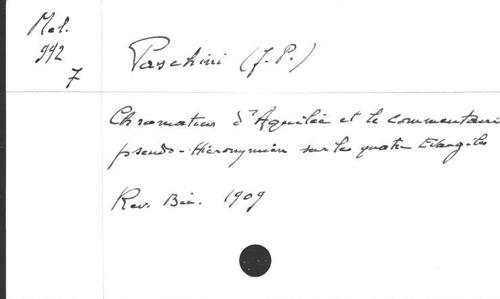 Mel.
992
7
Paschini (J. P.)
Chromatius d'Aquilée et le commentaire
pseudo-Hiéronymien sur les quatre Evangiles
Rev. Bén. 1909